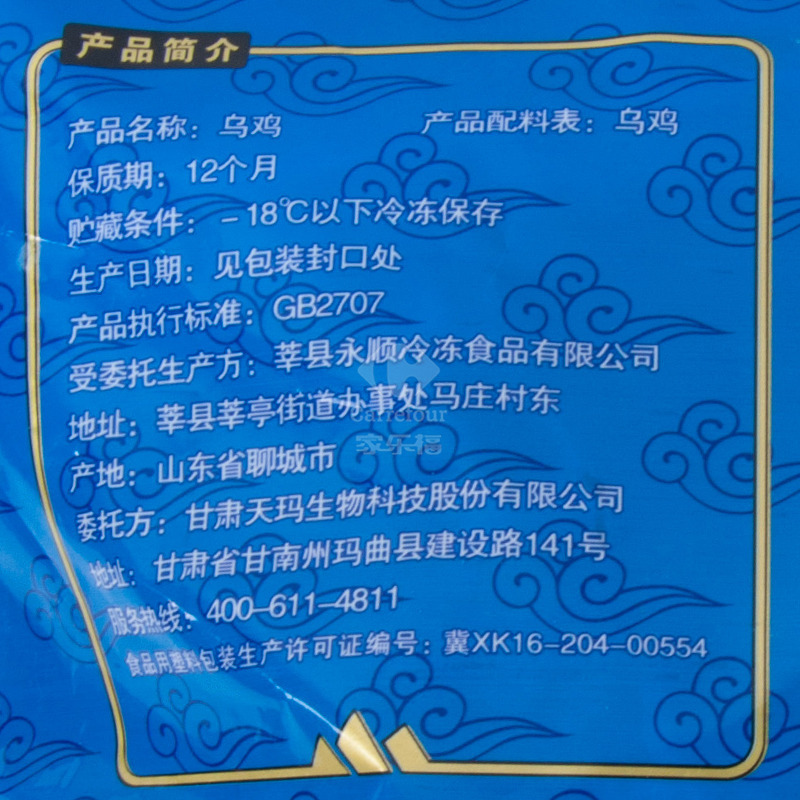 产品简介
产品名称：乌鸡 产品配料表：乌鸡
保质期：12个月
贮藏条件：－18℃以下冷冻保存
生产日期：见包装封口处
产品执行标准：GB2707
受委托生产方：莘县永顺冷冻食品有限公司
地址：莘县莘亭街道办事处马庄村东
Carrefour
家乐福
产地：山东省聊城市
委托方：甘肃天玛生物科技股份有限公司
地址：甘肃省甘南州玛曲县建设路141号
服务热线：400-611-4811
食品用塑料包装生产许可证编号：冀XK16-204-00554